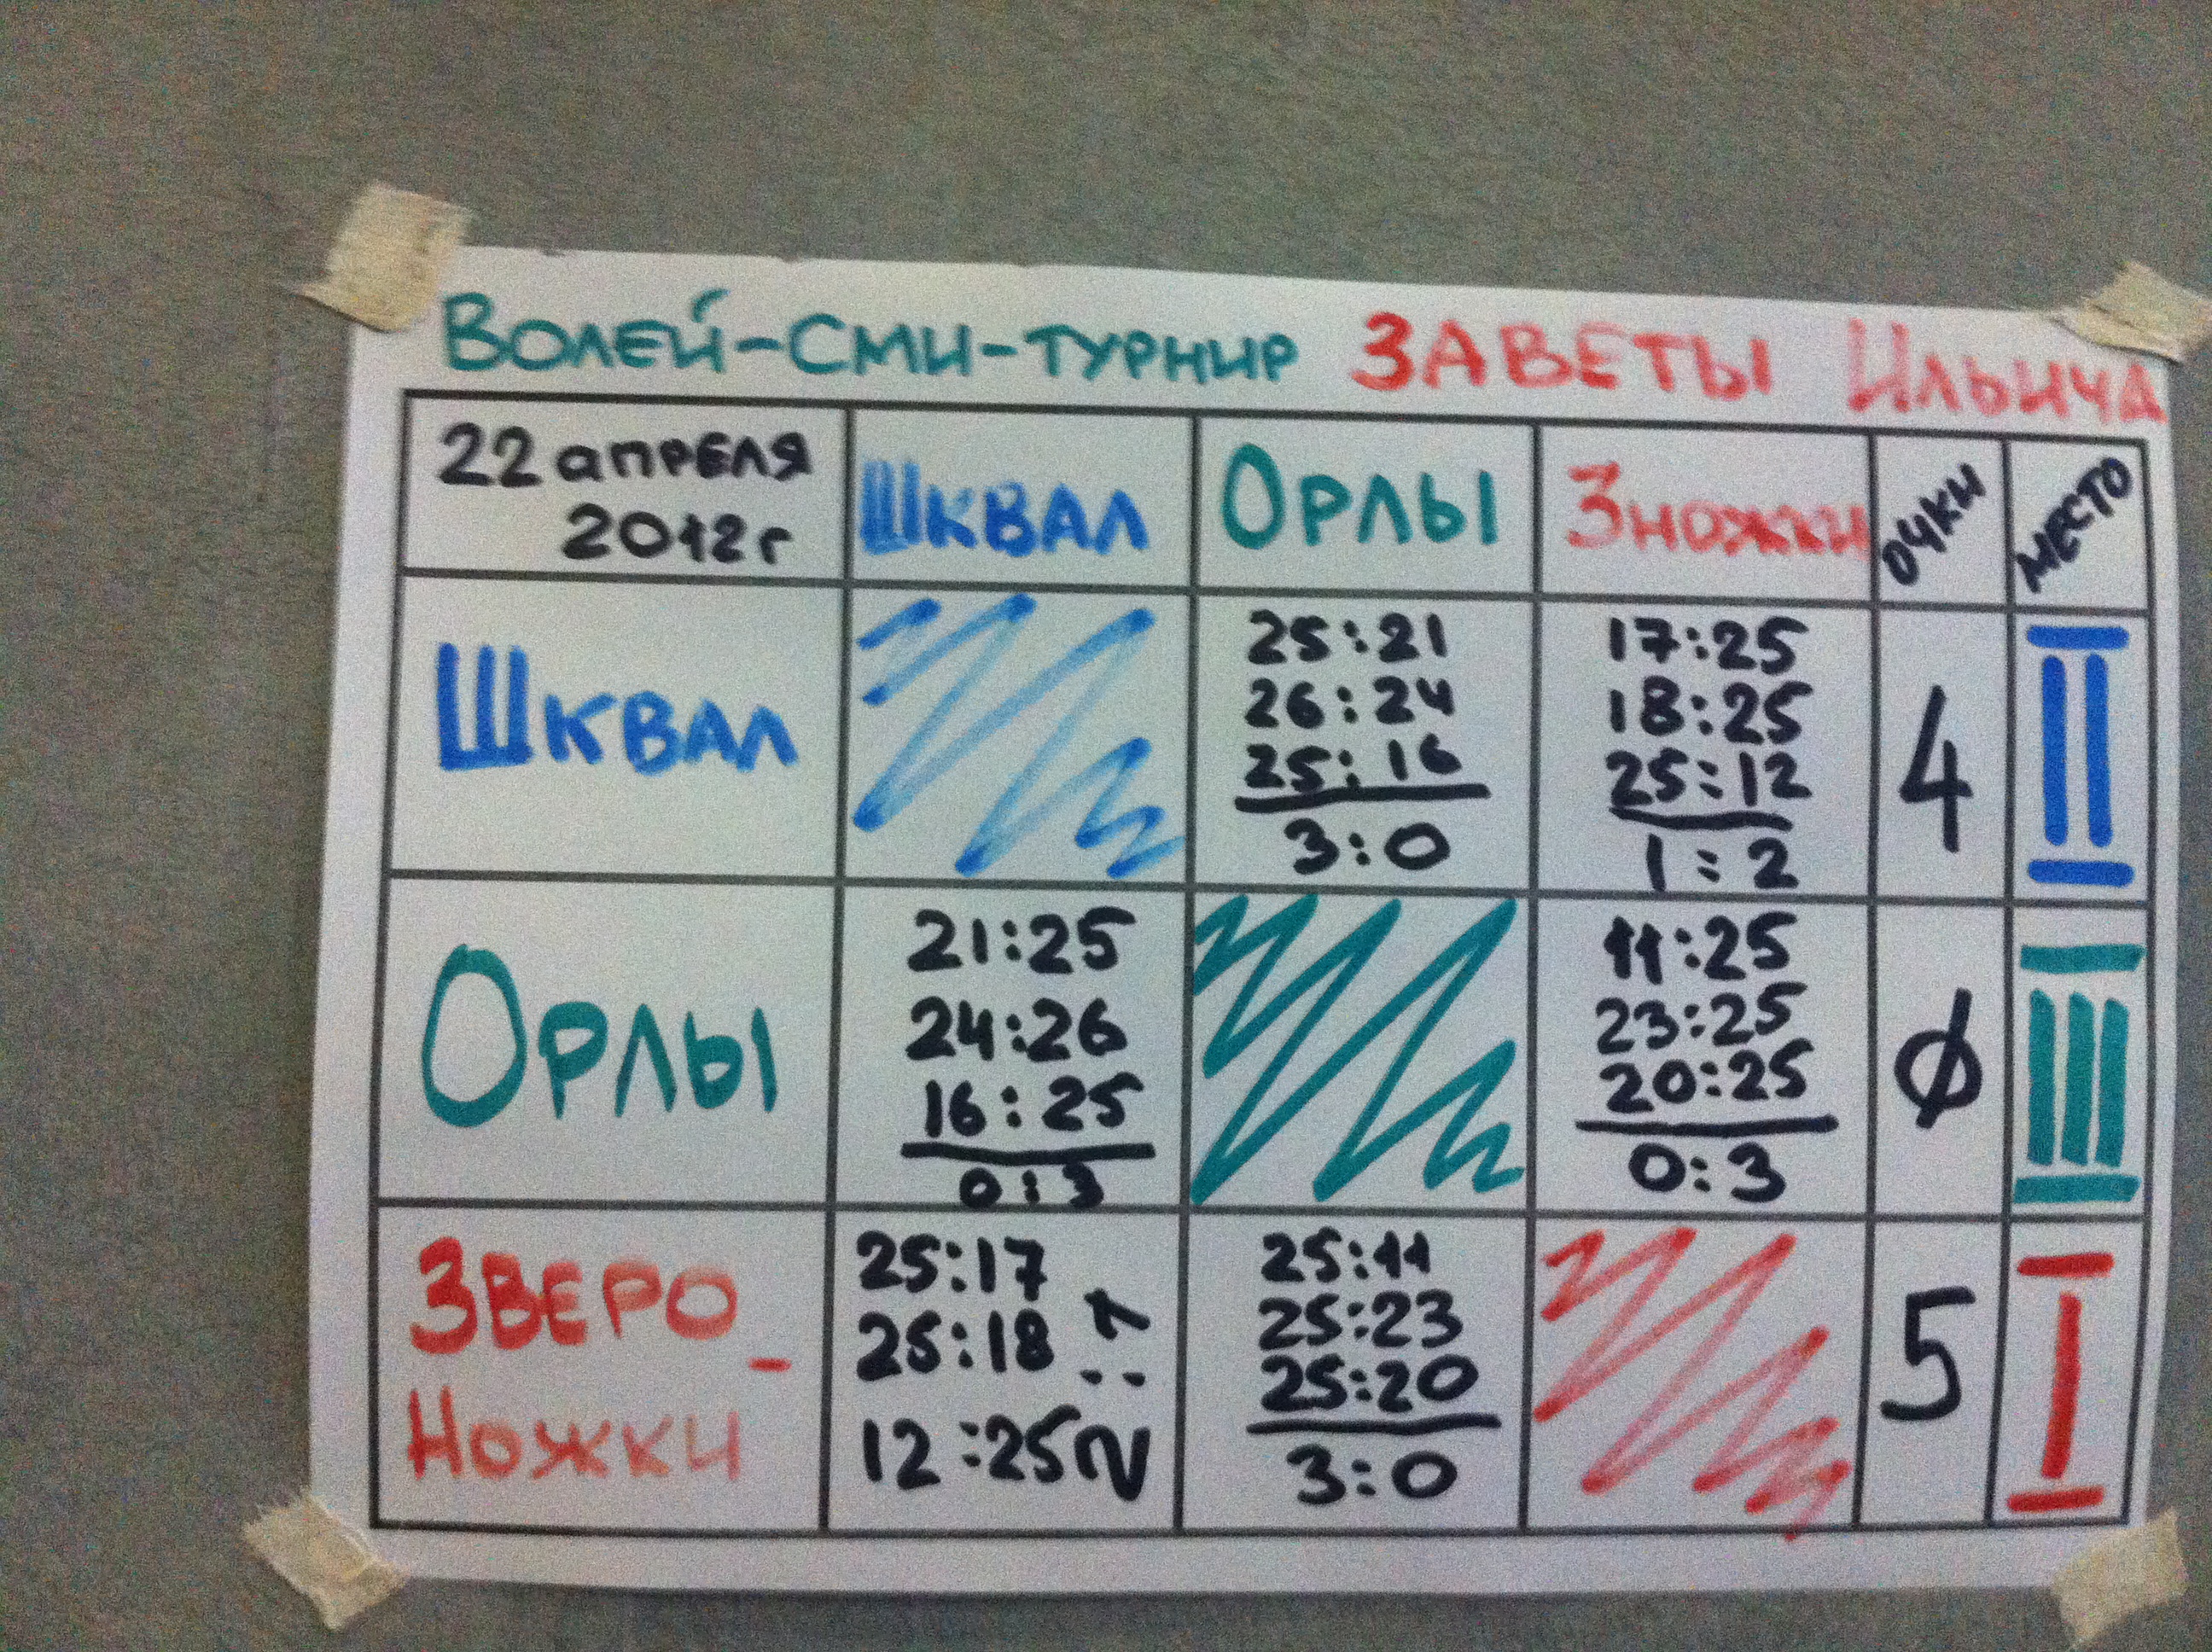 Волей-СМИ-турнир Заветы Ильича
22 апреля
2012г
Шквал
Орлы
Зножки
очки
место
Шквал
25:21
26:24
25:16
3:0
17:25
18:25
25:12
1:2
4
II
Орлы
21:25
24:26
16:25
0:3
11:25
23:25
20:25
0:3
0
III
Зверо-
Ножки
25:17
25:18
12:25
2:1
25:11
25:23
25:20
3:0
5
I